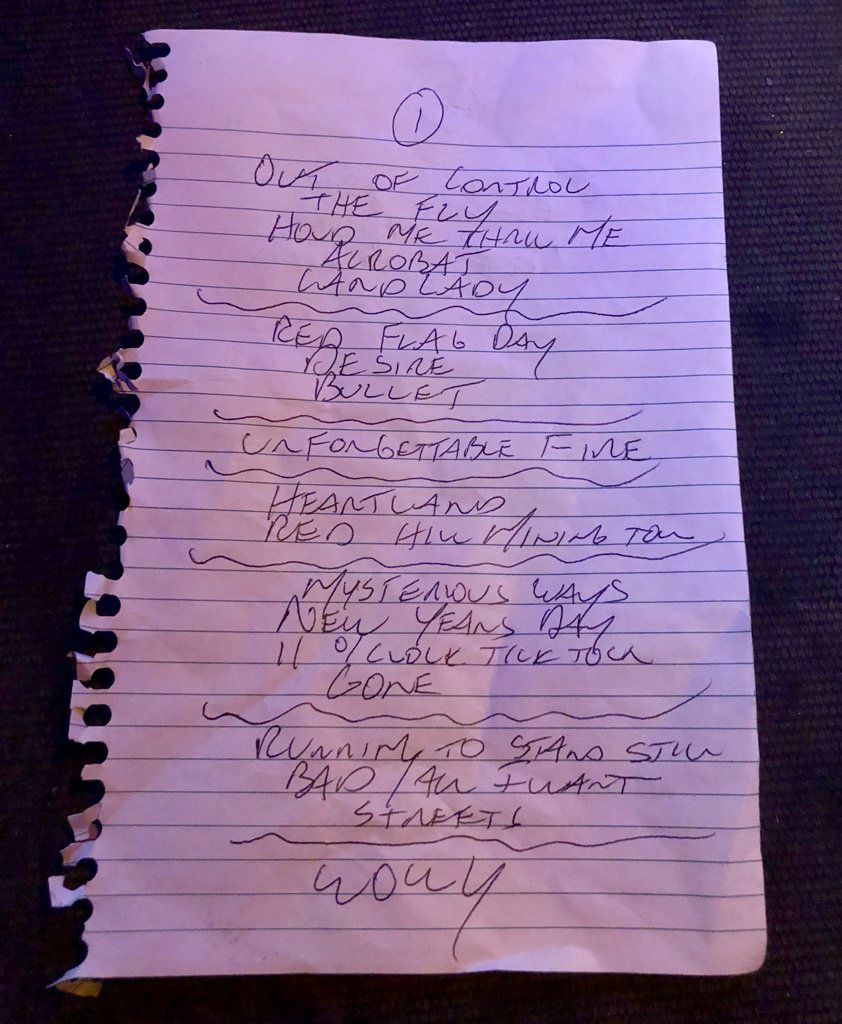 1
OUT OF CONTROL
THE FLY
HOLD ME THRILL ME
ACROBAT
LANDLADY
RED FLAG DAY
DESIRE
BULLET
UNFORGETTABLE FIRE
HEARTLAND
RED HILL MINING TOWN
MYSTERIOUS WAYS
NEW YEARS DAY
11 O'CLOCK TICK TOCK
GONE
RUNNING TO STAND STILL
BAD / ALL I WANT
STREETS